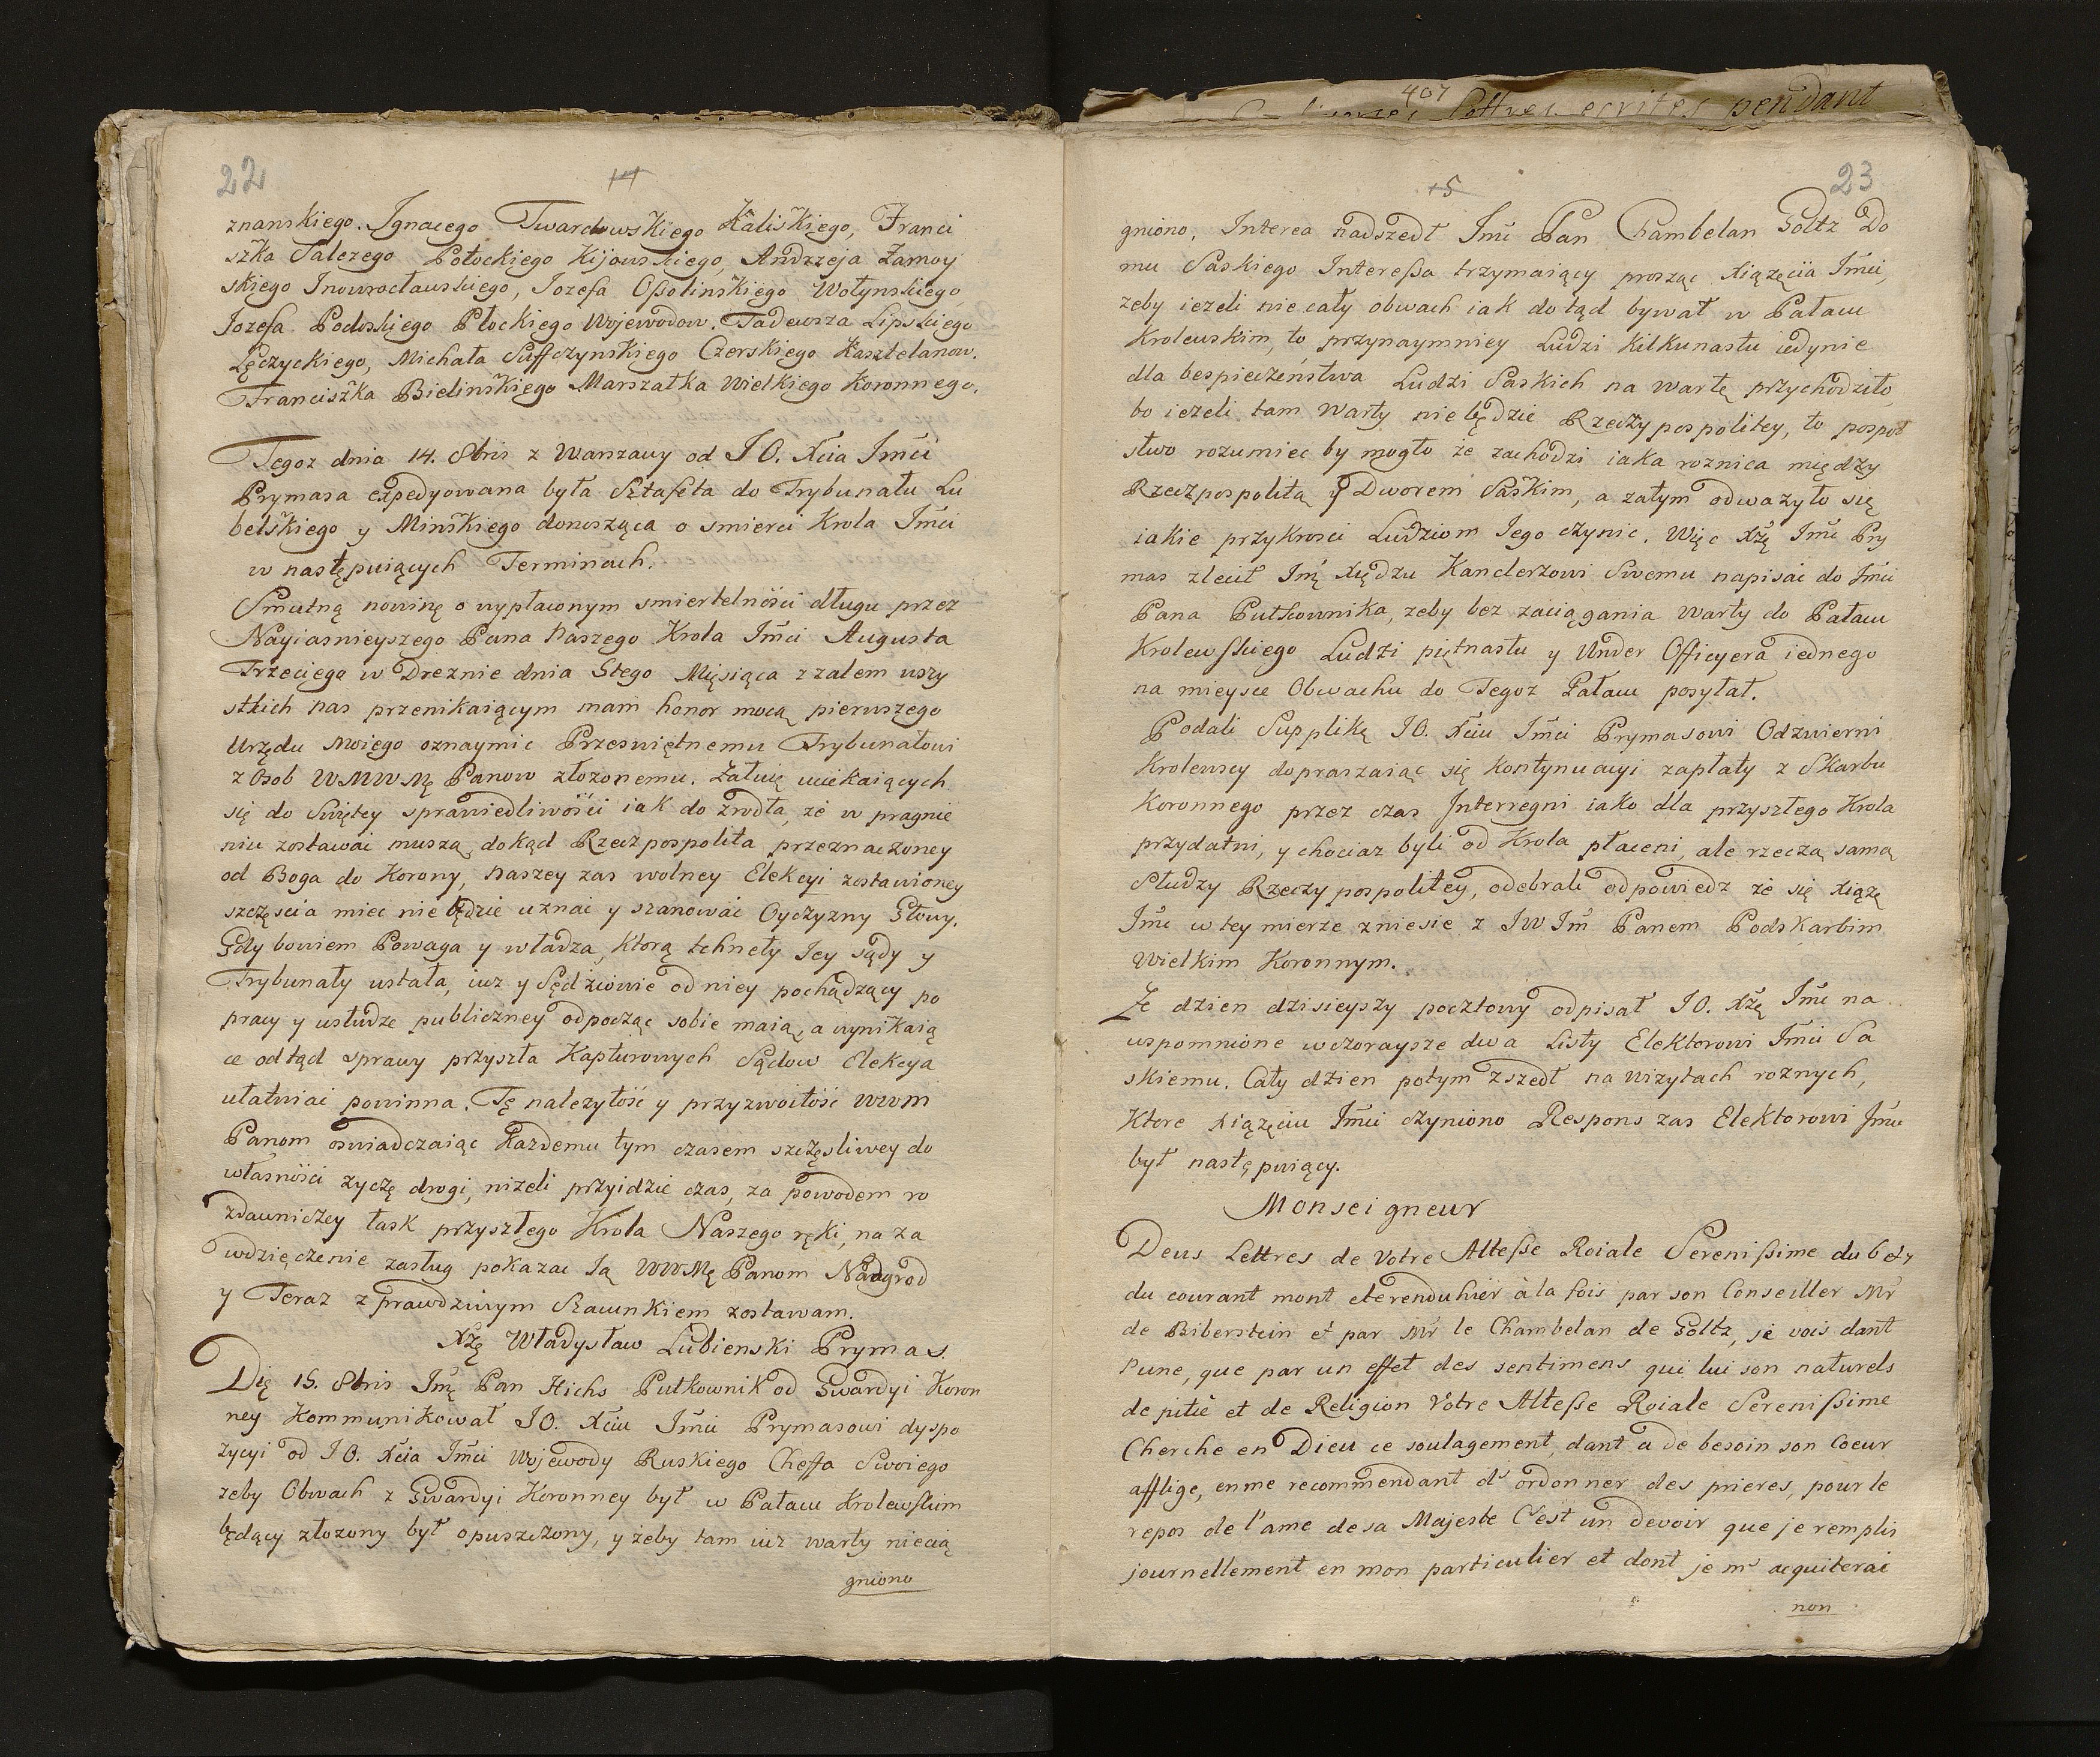 22
14
znanskiego. Ignacego Twardowskiego Kaliskiego, Franci
szka Salezego Potockiego Kijowskiego, Andrzeja Zamoy
skiego Inowrocławskiego, Jozefa Ossolinskiego Wołynskiego
Jozefa Podoskiego Płockiego Wojewodow. Tadeusza Lipskiego
Łęczyckiego, Michała Suffczynskiego Czerskiego Kasztelanow.
Franciszka Bielinskiego Marszałka Wielkiego Koronnego.
Tegoz dnia 14. 8bris z Warszawy od J O. Xcia Jmći
Prymasa expedyowana była Sztafeta do Trybunału Lu
belskiego y Minskiego donosząca o smierci Krola Jmći
w następuiących Terminach.
Smutną nowinę o wypłaconym smiertelności długu przez
Nayiasnieyszego Pana Naszego Krola Jmći Augusta
Trzeciego w Dreznie dnia 5tego Mięsiąca z zalem wszy
stkich nas przenikaiącym mam honor mocą pierwszego
Urzędu Moiego oznaymic Przeswiętnemu Trybunałowi
z Osob WMWMę Panow złozonemu. Załuię uciekaiących
się do Swiętey sprawiedliwości iak do zrodła, że w pragnie
niu zostawać muszą, dokąd Rzeczpospolita przeznaczoney
od Boga do Korony, Naszey zas wolney Elekcyi zostawioney
szczęscia miec nie będzie uznać y szanować Oyczyzny Głowy.
Gdy bowiem Powaga y władza, ktorą tchnęły Jey sądy y
Trybunały ustała, iuz y Sędziowie od niey pochądzący po
pracy y usłudze publiczney odpocząc sobie maią, a wynikaią
ce odtąd sprawy przyszła Kapturowych Sądow Elekcya
ułatwiać powinna. Tę nalezytość y przyzwoitość WWM
Panom oswiadczaiąc kazdemu tym czasem szczęsliwey do
własności zyczę drogi, nizeli przyidzie czas, za powodem ro
zdawniczey łask przyszłego Krola Naszego ręki, na za
wdzięczenie zasług pokazac Ją WWMę Panom Nadgrod
y Teraz z prawdziwym Szacunkiem zostawam.
Xżę Władysław Łubienski Prymas.
Dię 15. 8bris Jmę Pan Hichs Pułkownik od Gwardyi Koron
ney Kommunikował J O. Xciu Jmći Prymasowi dyspo
zycyi od J O. Xcia Jmći Wojewody Ruskiego Cheffa Swoiego
zeby Obwach z Gwardyi Koronney był w Pałacu Krolewskim
będący złozony był opuszczony, y żeby tam iuz warty niecią
gniono
407
Lettres ecrites pendant
15
23
gniono. Interea nadszedł Jmć Pan Chambelan Goltz Do
mu Saskiego Interessa trzymaiący prosząc Xiązęcia Jmći,
zeby iezeli nie cały obwach iak dotąd bywał w Pałacu
Krolewskim, to przynaymniey Ludzi kilkunastu iedynie
dla bespieczeństwa Ludzi Saskich na wartę przychodziło,
bo iezeli tam Warty nie będzie Rzeczypospolitey, to pospol
stwo rozumiec by mogło że zachodzi iaka roznica między
Rzecząpospolitą y Dworem Saskim, a zatym odwazyło się
iakie przykrosci Ludziom Jego czynic. Więc Xżę Jmć Pry
mas zlecił Jmę Xiędzu Kanclerzowi Swemu napisać do Jmći
Pana Pułkownika, zeby bez zaciągania Warty do Pałacu
Krolewskiego Ludzi piętnastu y Under Officyera iednego
na mieysce Obwachu do Tegoz Pałacu posyłał.
Podali Supplikę J O. Xciu Jmći Prymasowi Odzwierni
Krolewscy dopraszaiąc się kontynuacyi zapłaty z Skarbu
Koronnego przez czas Interregni iako dla przyszłego Krola
przydatni, y chociaz byli od Krola płaceni, ale rzeczą samą
Słudzy Rzeczypospolitey, odebrali odpowiedz że się Xiążę
Jmć w tey mierze zniesie z J W Jm̃ Panem Podskarbim
Wielkim Koronnym.
Ze dzien dzisieyszy pocztowy odpisał J O. Xżę Jmć na
wspomnione wczoraysze dwa Listy Elektorowi Jmći Sa
skiemu. Cały dzien potym zszedł na wizytach roznych,
Ktore Xiązęciu Jmći czyniono Respons zas Elektorowi Jmći
był następuiący.
Monseigneur
Deus Lettres de Votre Altesse Roiale Serenissime du 6 et 7
du courant mont eterenduhièr à la fois par son Conseiller Mr
de Biberstein et par Mr le Chambelan de Goltz, je vois dant
l'une, que par un effet des sentimens qui lui son naturels
de pitiè et de Religion Votre Altesse Roiale Serenissime
Cherche en Dieu ce soulagement dant a de besoin son Coeur
afflige, en me recommendant d'ordonner des prieres, pour le
repos de l'ame de sa Majeste C'est un devoir que je remplis
journellement en mon particulier et dont je m'acquiterai
non